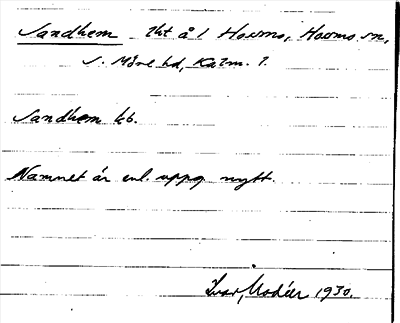 Sandhem lht å 1 Hossmo, Hossmo sn,
S. Möre hd, Kalm. l.
Sandhem kb.
Namnet är enl. uppg nytt.
Ivar Modéer 1930.